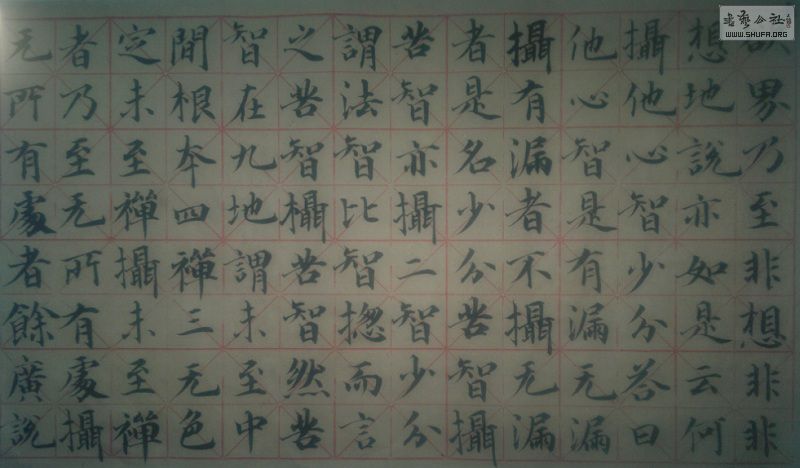 欲界乃至非想非非
想地說亦如是云何
攝他心智少分答曰
他心智是有漏无漏
攝有漏者不攝无漏
者是名少分苦智攝
苦智亦攝二智少分
謂法智比智揔而言
之苦智攝苦智然苦
智在九地謂未至中
間根夲四禪三无色
定未至禪攝未至禪
者乃至无所有處攝
无所有處者餘廣說
書藝公社
WWW.SHUFA.ORG